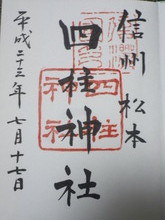 信州 松本
四柱神社
四柱神社
平成二十三年 七月十七日